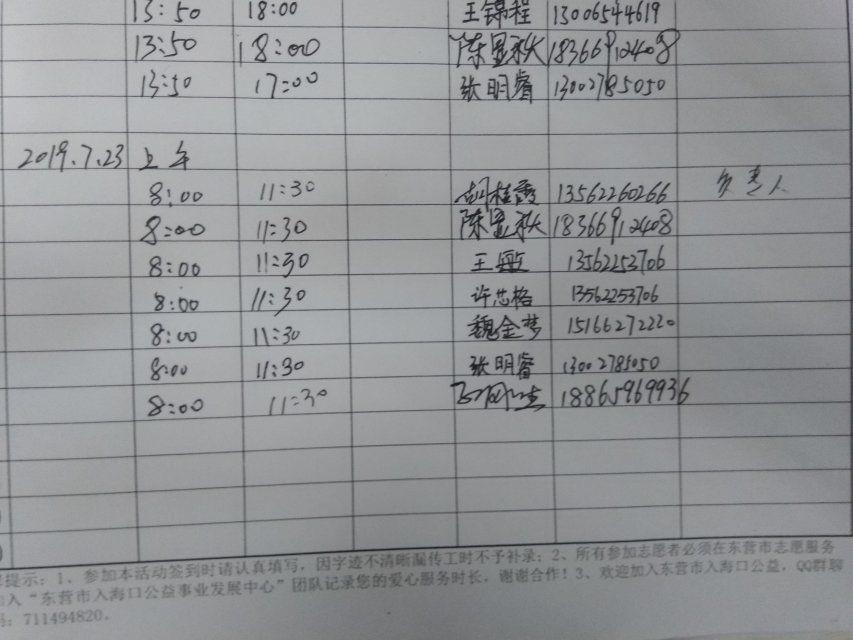 13:50 18:00 王锦程 13006544619
13:50 18:00 陈显秋 18366912408
13:50 17:00 张明睿 13002785050
2019.7.23 上午
8:00 11:30 胡桂秀 13562260266 负责人
8:00 11:30 陈显秋 18366912408
8:00 11:30 王敏 13562253706
8:00 11:30 许芯格 13562253706
8:00 11:30 魏金梦 15166272220
8:00 11:30 张明睿 13002785050
8:00 11:30 18865969936
提示：1、参加本活动签到时请认真填写，因字迹不清晰漏传工时不予补录；2、所有参加志愿者必须在东营市志愿服务
入“东营市入海口公益事业发展中心”团队记录您的爱心服务时长，谢谢合作！3、欢迎加入东营市入海口公益，QQ群聊
：711494820。